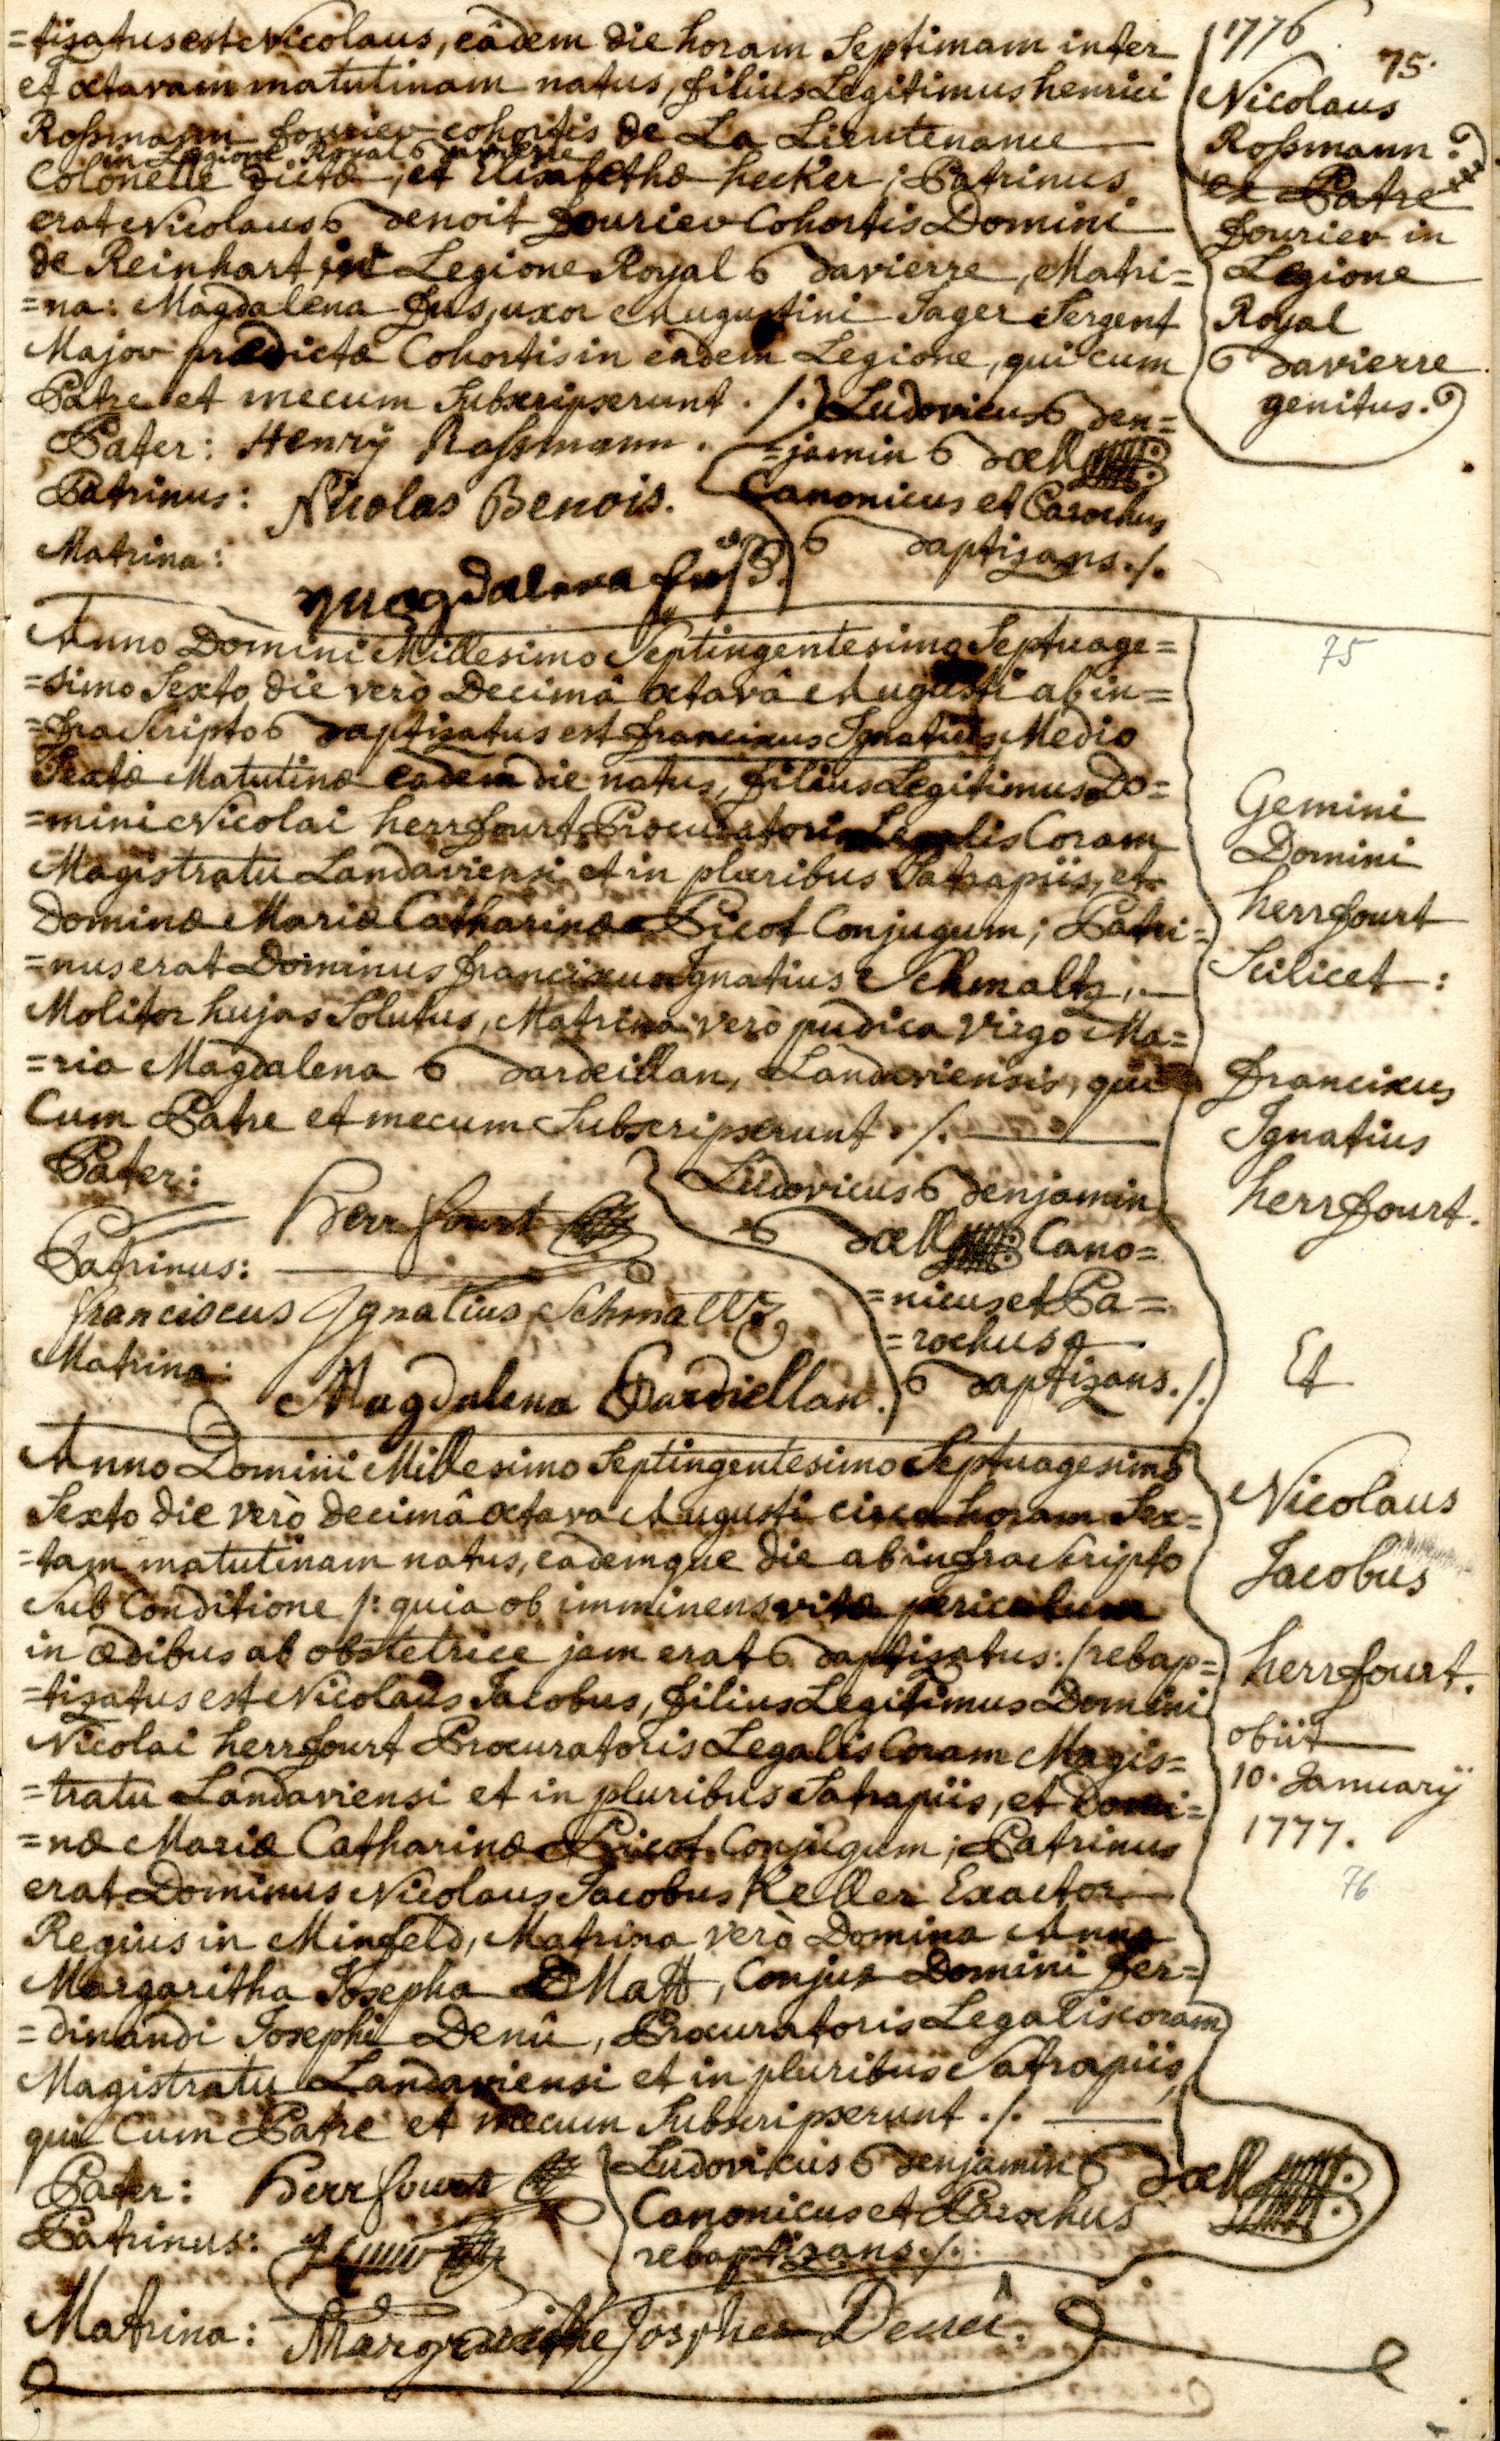 =tizatus est Nicolaus, eâdem die horam Septimam inter
et octavam matutinam natus, filius Legitimus henrici
Roßmann fourier cohortis de La Lieutenance
in Legione Royal Bavierre
Colonelle dictæ, et Elisabethæ hecker; Patrinus
erat Nicolaus Benoit fourier Cohortis Domini
de Reinhart in Legione Royal Bavierre, Matri=
=na: Magdalena fus, uxor Augustini Sager Sergent
Major prædictæ Cohortis in eadem Legione, qui cum
Patre et mecum Subscripserunt ./.
Pater: Henrÿ Roßmann.
Patrinus: Nicolas Benois.
Matrina: Magdalena
Ludovicus Ben=
=jamin Boell
Canonicus et Parochus
Baptizans./.
1776
75.
Nicolaus
Roßmann:
ex Patre
fourier in
Legione
Royal
Bavierre
genitus.
Anno Domini Millesimo Septingentesimo Septuage=
=simo Sexto die verò Decimâ octavâ Augusti ab in=
=fra Scripto Baptizatus est franciscus Ignatius Medio
Sextæ Matutinæ eadem die natus, filius Legitimus Do=
=mini Nicolai herrfourt Procuratoris Legalis Coram
Magistratu Landaviensi et in pluribus Satrapiis, et
Dominæ Mariæ Catharinæ Picot Conjugum; Patri=
=nus erat Dominus franciscus Ignatius Schmaltz,
Molitor hujas Solutus, Matrina verò pudica Virgo Ma=
=ria Magdalena Bardeillan, Landaviensis, qui
Cum Patre et mecum Subscripserunt ./.
Pater: Herrfourt
Patrinus:
franciscus Ignatius Schmaltz
Matrina:
Magdalena Bardiellan.
Ludovicus Benjamin
Boell Cano=
=nicus et Pa=
=rochus
Baptizans./.
75
Gemini
Domini
herrfourt
Scilicet:
franciscus
Ignatius
herrfourt.
Et
Nicolaus
Jacobus
herrfourt.
obiit
10. Januarÿ
1777.
76
Anno Domini Millesimo Septingentesimo Septuagesimo
Sexto die verò decimâ octava Augusti circa horam Sex=
=tam matutinam natus, eademque die ab infra Scripto
Sub Conditione /: quia ob imminens vitæ periculum
in ædibus ab obstetrice jam erat Baptizatus :/ rebap=
=tizatus est Nicolaus Jacobus, filius Legitimus Domini
Nicolai herrfourt Procuratoris Legalis Coram Magis=
=tratu Landaviensi et in pluribus Satrapiis, et Domi=
=næ Mariæ Catharinæ Picot Conjugum; Patrinus
erat Dominus Nicolaus Jacobus Keller Exactor
Regius in Minfeld, Matrina verò Domina Anna
Margaritha Josepha Matt, Conjux Domini fer=
=dinandi Josephi Denû, Procuratoris Legalis coram
Magistratu Landaviensi et in pluribus Satrapiis,
qui Cum Patre et mecum Subscripserunt ./.
Pater: Herrfourt
Patrinus:
Matrina: Josephe Denû.
Ludovicus Benjamin Boell
Canonicus et Parochus
rebaptizans./.